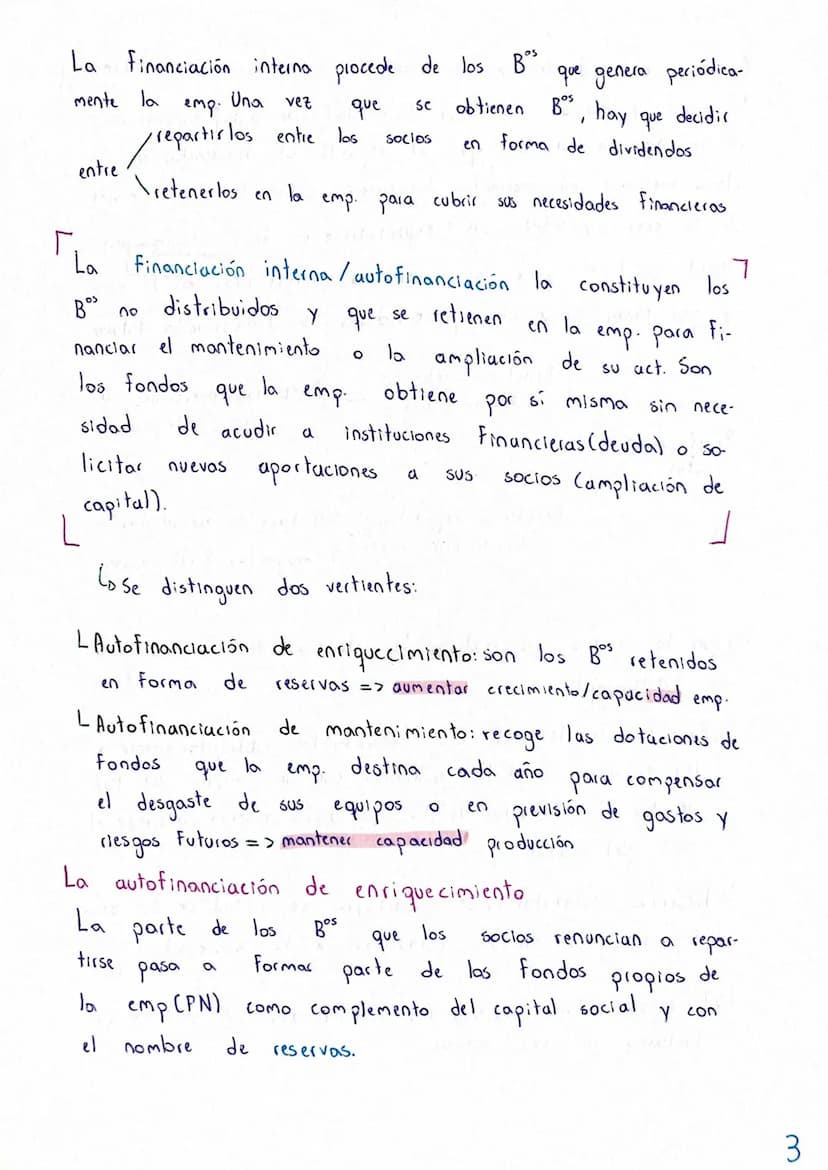 La financiación interna procede de los Bºs que genera periódica-
mente la emp. Una vez que se obtienen Bºs, hay que decidir
repartirlos entre los socios en forma de dividendos
entre
retenerlos en la emp. para cubrir sus necesidades financieras
La financiación interna/autofinanciación la constituyen los
Bºs no distribuidos y que se retienen en la emp. para fi-
nanciar el mantenimiento o la ampliación de su act. Son
los fondos que la emp. obtiene por sí misma sin nece-
sidad de acudir a instituciones financieras (deuda) o so-
licitar nuevos aportaciones a sus socios (ampliación de
capital).
↳ Se distinguen dos vertientes:
└ Autofinanciación de enriquecimiento: son los Bºs retenidos
en forma de reservas => aumentar crecimiento/capacidad emp.
└ Autofinanciación de mantenimiento: recoge las dotaciones de
fondos que la emp. destina cada año para compensar
el desgaste de sus equipos o en previsión de gastos y
riesgos futuros => mantener capacidad producción
La autofinanciación de enriquecimiento
La parte de los Bºs que los socios renuncian a repar-
tirse pasa a formar parte de los fondos propios de
la emp (PN) como complemento del capital social y con
el nombre de reservas.
3